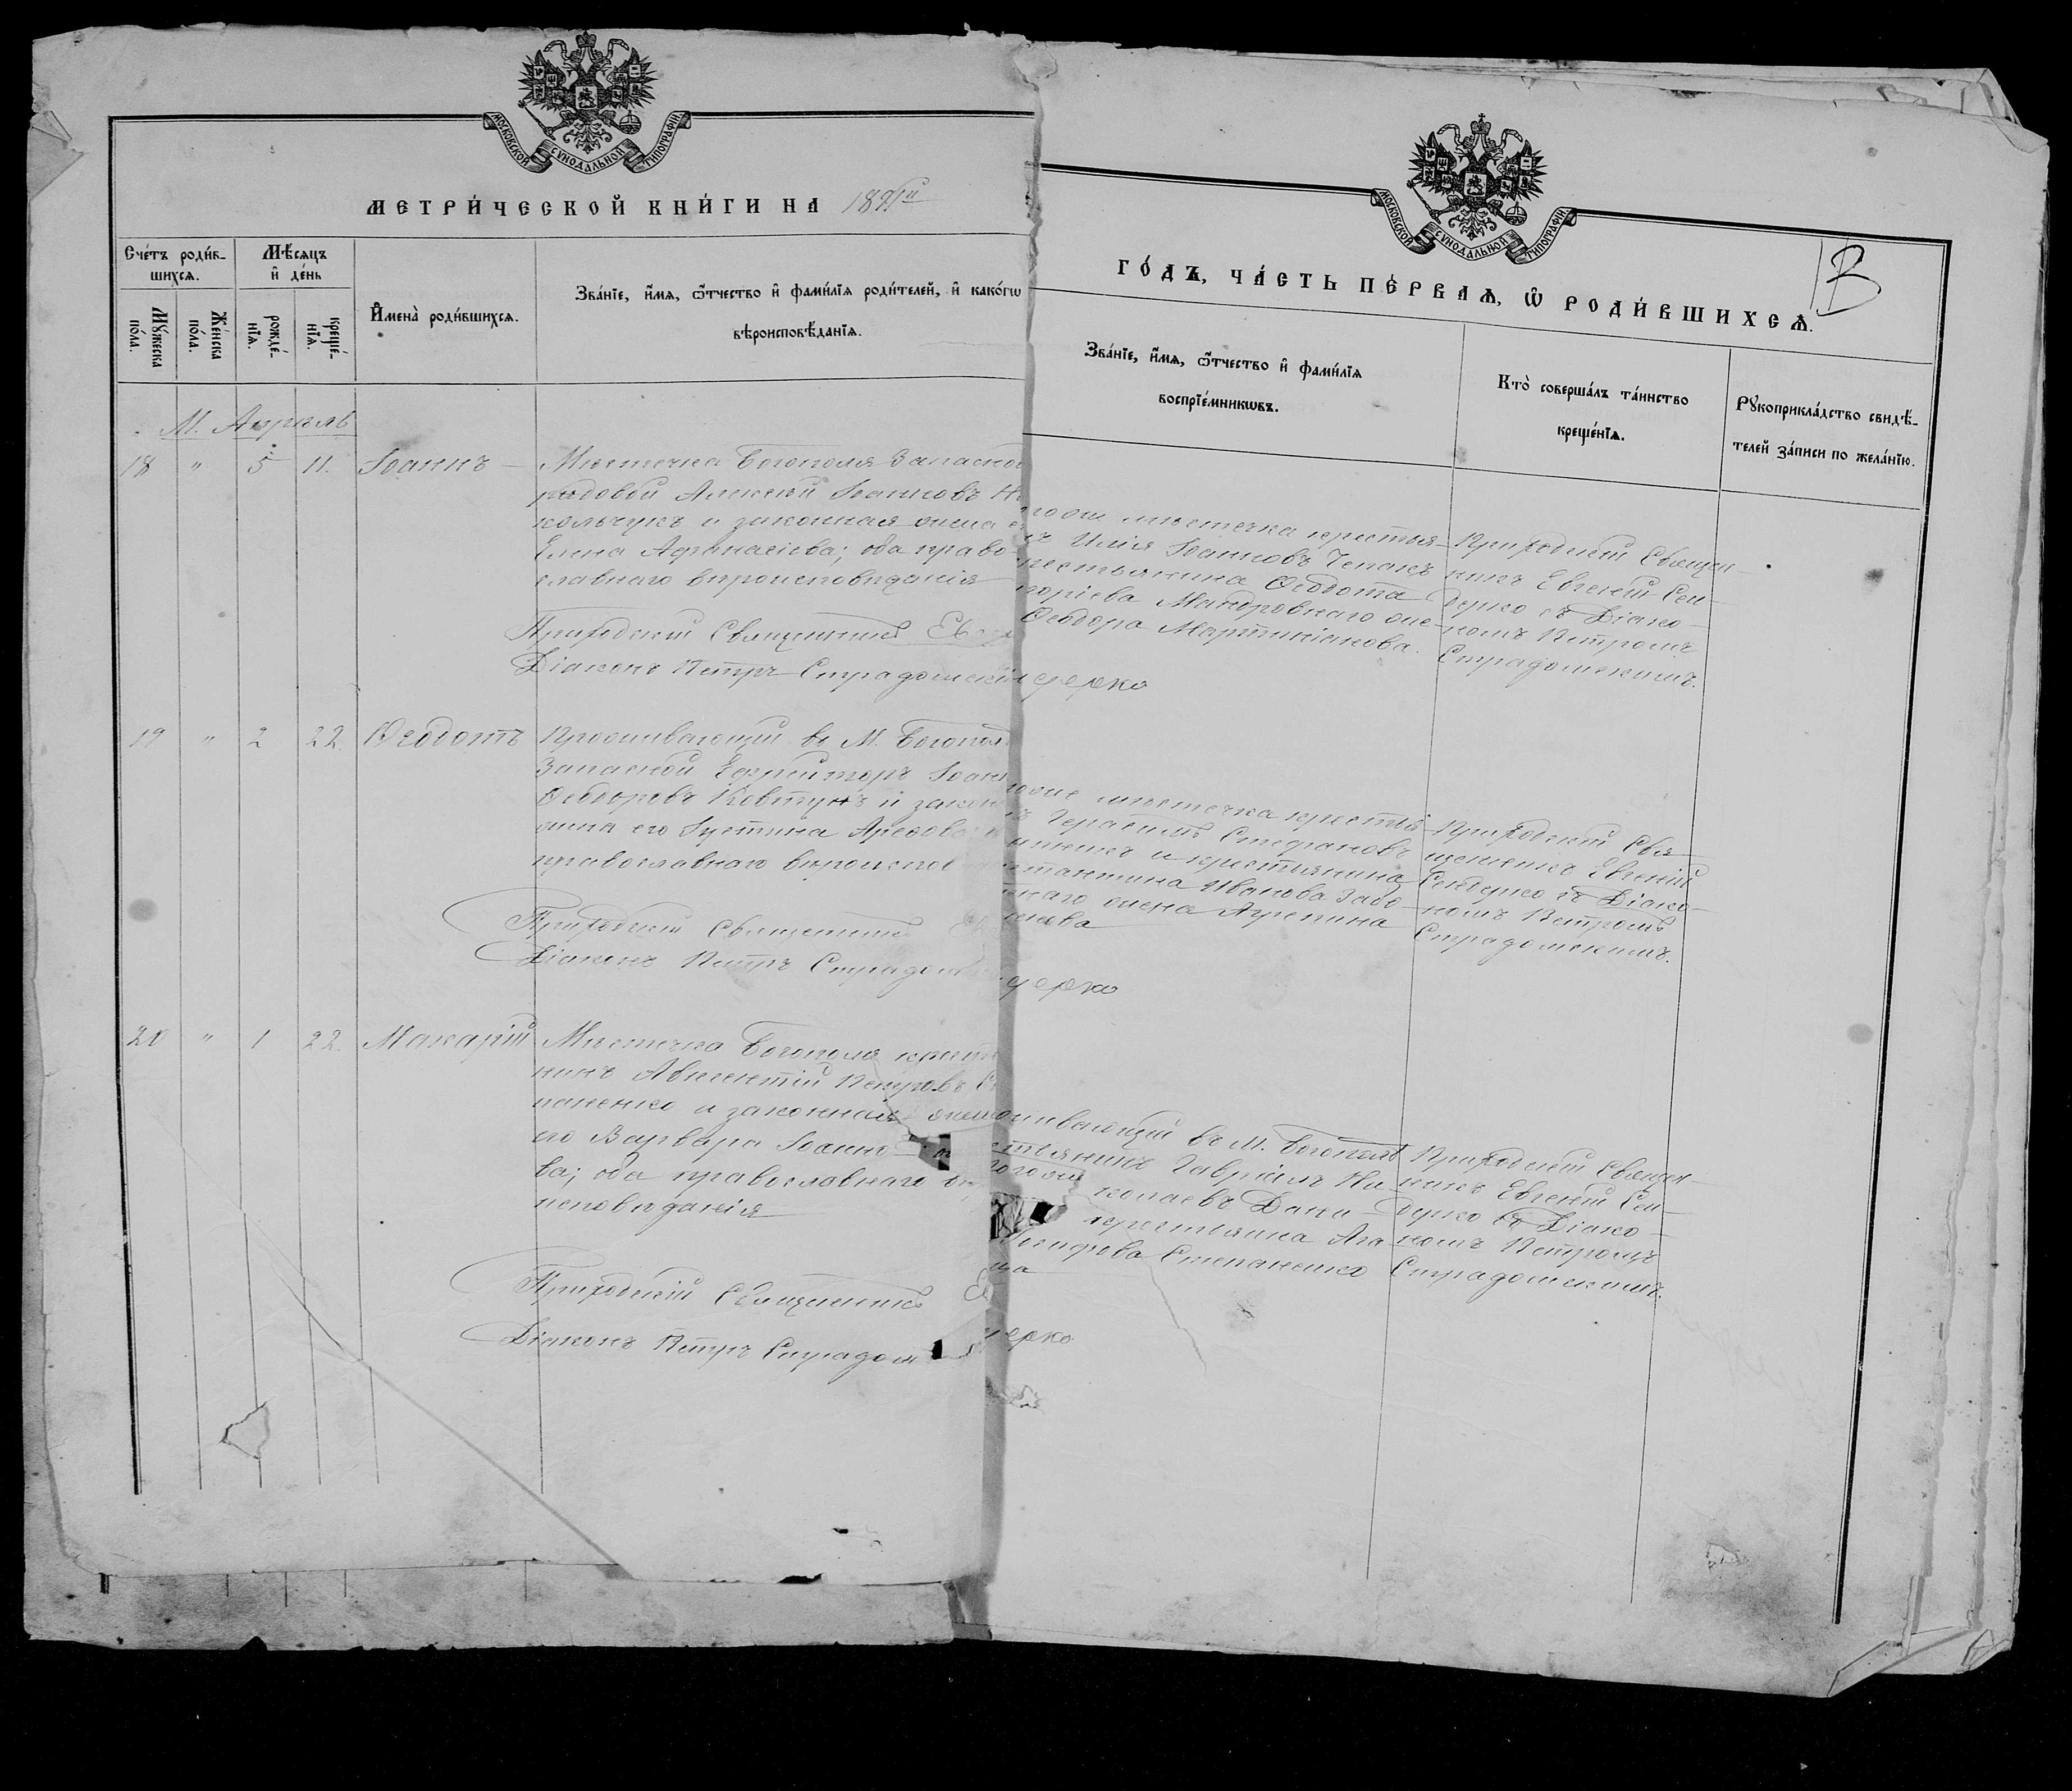 МОСКОВСКОЙ СѴНОДАЛЬНОЙ ТИПОГРАФІИ
МЕТРИ́ЧЕСКОЙ КНИ́ГИ НА 1891й
Сче́тъ роди́в-
шихсѧ.
Мѣ́сѧцъ
и҆ де́нь
Мꙋ́жеска
по́ла.
Же́нска
по́ла.
рожде́-
нїѧ.
креще́-
нїѧ.
И҆мена̀ роди́вшихсѧ.
Зва́нїе, и҆́мѧ, ѻ҆́тчество и҆ фами́лїѧ роди́телей, и҆ како́гѡ
вѣроисповѣ́данїѧ.
М. Апрѣль
18 " 5 11. Іоаннъ
Мѣстечка Богополя Запасной
рядовой Алексѣй Іоанновъ
кольчукъ и законная жена
Елена Афанасіева; оба право-
славнаго вѣроисповѣданія
Приходскій Священникъ
Діаконъ Петръ Страдомскій
19 " 2 22. Ѳеодотъ
Проживающій въ М. Богополѣ
Запасной Ефрейторъ Іоаннъ
Ѳеодоровъ Ковтунъ и закон
жена его Іустина
православнаго вѣроиспов
Приходскій Священникъ
Діаконъ Петръ Страдом
20 " 1 22. Макарій
Мѣстечка Богополя кресть
нинъ Авксентій Петровъ
паненко и законная жена
его Варвара Іоанно
ва; оба православнаго вѣ
исповѣданія
Приходскій Священникъ
Діаконъ Петръ Страдом
МОСКОВСКОЙ СѴНОДАЛЬНОЙ ТИПОГРАФІИ
В
ГО́ДЪ, ЧА́СТЬ ПЕ́РВАѦ, Ѡ҆ РОДИ́ВШИХСѦ.
Зва́нїе, и҆́мѧ, ѻ҆́тчество и҆ фами́лїѧ
воспрїе́мникѡвъ.
Кто̀ соверша́лъ та́инство
креще́нїѧ.
Рꙋкоприкла́дство свидѣ́-
телей за́писи по жела́нїю.
тогоже мѣстечка крестья-
нъ Илія Іоанновъ Чепакъ
крестьянина Ѳеодота
горіева Мандровнаго же-
Ѳеодора Мартиніанова.
Приходскій Священ-
никъ Евгеній Сен-
дерко съ Діако-
номъ Петромъ
Страдомскимъ.
дерко
тоже мѣстечка крестья
нъ Герасимъ Стефановъ
и крестьянина
стантина Иванова Забо-
наго жена Агрепина
Приходскій Свя-
щенникъ Евгеній
Сендерко съ Діако-
номъ Петромъ
Страдомскимъ.
дерко
живающій въ М. Богополѣ
стьянинъ Гавріилъ Ни-
колаевъ
крестьянка Ага-
Степаненко
Приходскій Священ-
никъ Евгеній Сен-
дерко съ Діако-
номъ Петромъ
Страдомскимъ.
дерко